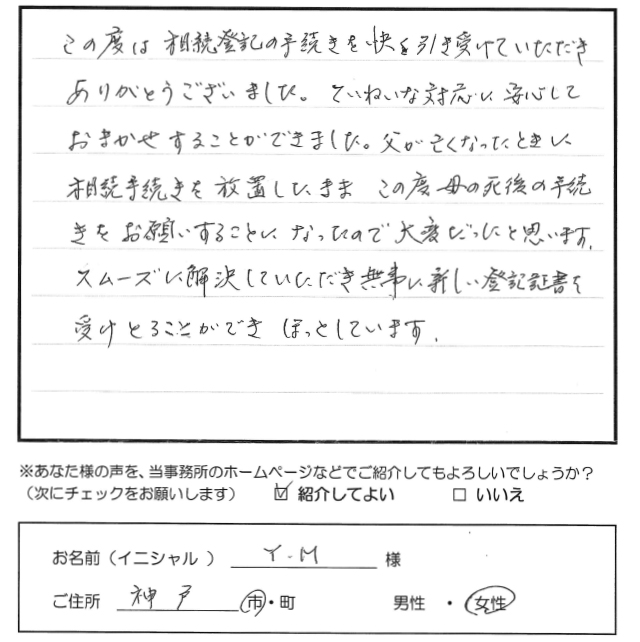 この度は 相続登記の手続きを快く引き受けていただき
ありがとうございました。ていねいな対応に 安心して
おまかせすることができました。父が亡くなったときに
相続手続きを 放置したまま この度母の死後の手続
きを お願いすることに なったので 大変だったと思います。
スムーズに解決していただき無事に新しい登記証書を
受けとることができ ほっとしています。
※あなた様の声を、当事務所のホームページなどでご紹介してもよろしいでしょうか？
（次にチェックをお願いします） ☑ 紹介してよい □ いいえ
お名前（イニシャル ） Y.M 様
ご住所 神戸 市・町 男性 ・ 女性